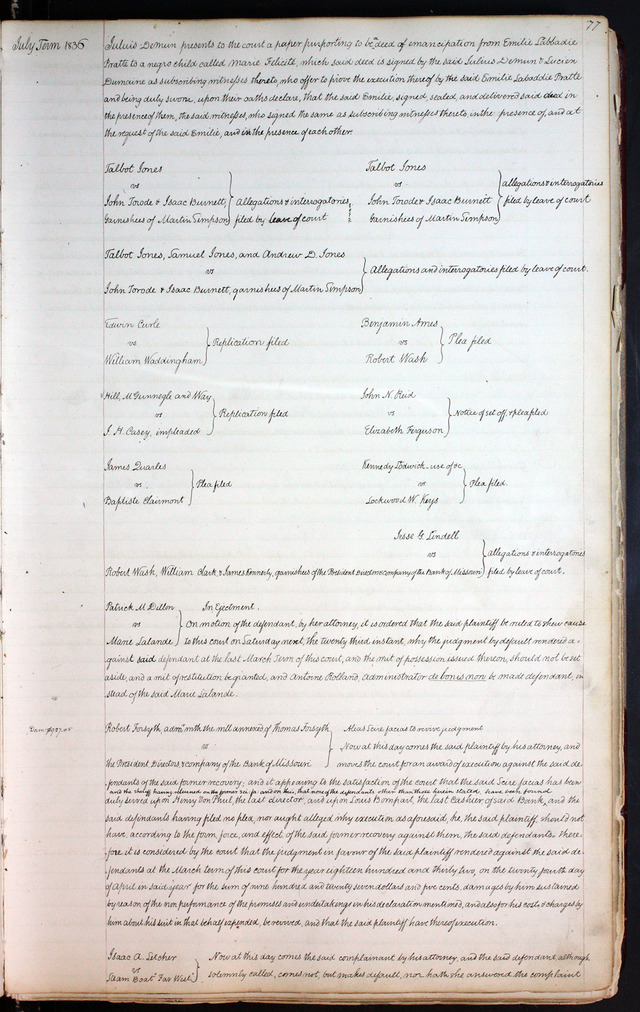 77
July Term 1836
Juluis Demun presents to the court a paper purporting to be a deed of emancipation from Emilie Labbadie
Pratte to a negro child called Marie Felicité, which said deed is signed by the said Juluis Demun & Lucien
Dumaine as subscribing witnesses thereto, who offer to prove the execution thereof by the said Emilie Labaddie Pratte
and being duly sworn, upon their oaths declare, that the said Emilie, signed, sealed, and delivered said deed in
the presence of them, the said witnesses, who signed the same as subscribing witnesses thereto, in the presence of, and at
the request of the said Emilie, and in the presence of each other.
Talbot Jones
vs
John Torode & Isaac Burnett
Garnishees of Martin Timpson
Allegations & interrogatories
filed by leave of court
Talbot Jones
vs
John Torode & Isaac Burnett
Garnishees of Martin Timpson
allegations & interrogatories
filed by leave of court
Talbot Jones, Samuel Jones, and Andrew D. Jones
vs
John Torode & Isaac Burnett, garnishees of Martin Timpson
Allegations and interrogatories filed by leave of court.
Edwin Curle
vs
William Waddingham
Replication filed
Benjamin Ames
vs
Robert Wash
Plea filed
Hill, McGunnegle and Way
vs
J. H. Casey, impleaded
Replication filed
John N. Reid
vs
Elizabeth Ferguson
Notice of set off, & plea filed
James Quarles
vs
Baptiste Clairmont
Plea filed
Kennedy Lodwick use of &c
vs
Lockwood W. Keys
Plea filed.
Jesse G. Lindell
vs
Robert Wash, William Clark, & James Kennerly, garnishees of the President Directors & company of the Bank of Missouri
allegations & interrogatories
filed by leave of court.
Patrick M. Dillon
vs
Marie Lalande
In Ejectment.
On motion of the defendant, by her attorney, it is ordered that the said plaintiff be ruled to shew cause
to this court on Saturday next, the twenty third instant, why the judgment by default rendered a-
gainst said defendant at the last March Term of this court, and the writ of possession issued thereon, should not be set
aside, and a writ of restitution be granted, and Antoine Rolland, Administrator de bonis non be made defendant, in
stead of the said Marie Lalande.
Dam $927.05
Robert Forsyth, admr. with the will annexed of Thomas Forsyth
vs
the President Directors, & company of the Bank of Missouri
Alias Scire facias to revive judgment
Now at this day comes the said plaintiff by his attorney, and
moves the court for an award of execution against the said de-
fendants of the said former recovery; and it appearing to the satisfaction of the court that the said Scire facias has been
and the sheriff having returned on the former sci fa and on this, that none of the defendants other than those herein stated, have been found
duly served upon Henry Von Phul, the last director, and upon Louis Bompart, the last Cashier of said Bank, and the
said defendants having filed no plea, nor aught alleged why execution as aforesaid, he, the said plaintiff, should not
have, according to the form, force, and effect of the said former recovery against them, the said defendants. There-
fore it is considered by the court that the judgment in favour of the said plaintiff rendered against the said de-
fendants at the March term of this court for the year eighteen hundred and thirty two, on the twenty fourth day
of April in said year for the sum of nine hundred and twenty seven dollars and five cents, damages by him sustained
by reason of the non performance of the promises and undertakings in his declaration mentioned, and also for his costs & charges by
him about his suit in that behalf expended, be revived, and that the said plaintiff have thereof execution.
Isaac A. Letcher
vs
Steam Boat Far West
Now at this day comes the said complainant by his attorney, and the said defendant although
solemnly called, comes not, but makes default, nor hath she answered the complaint